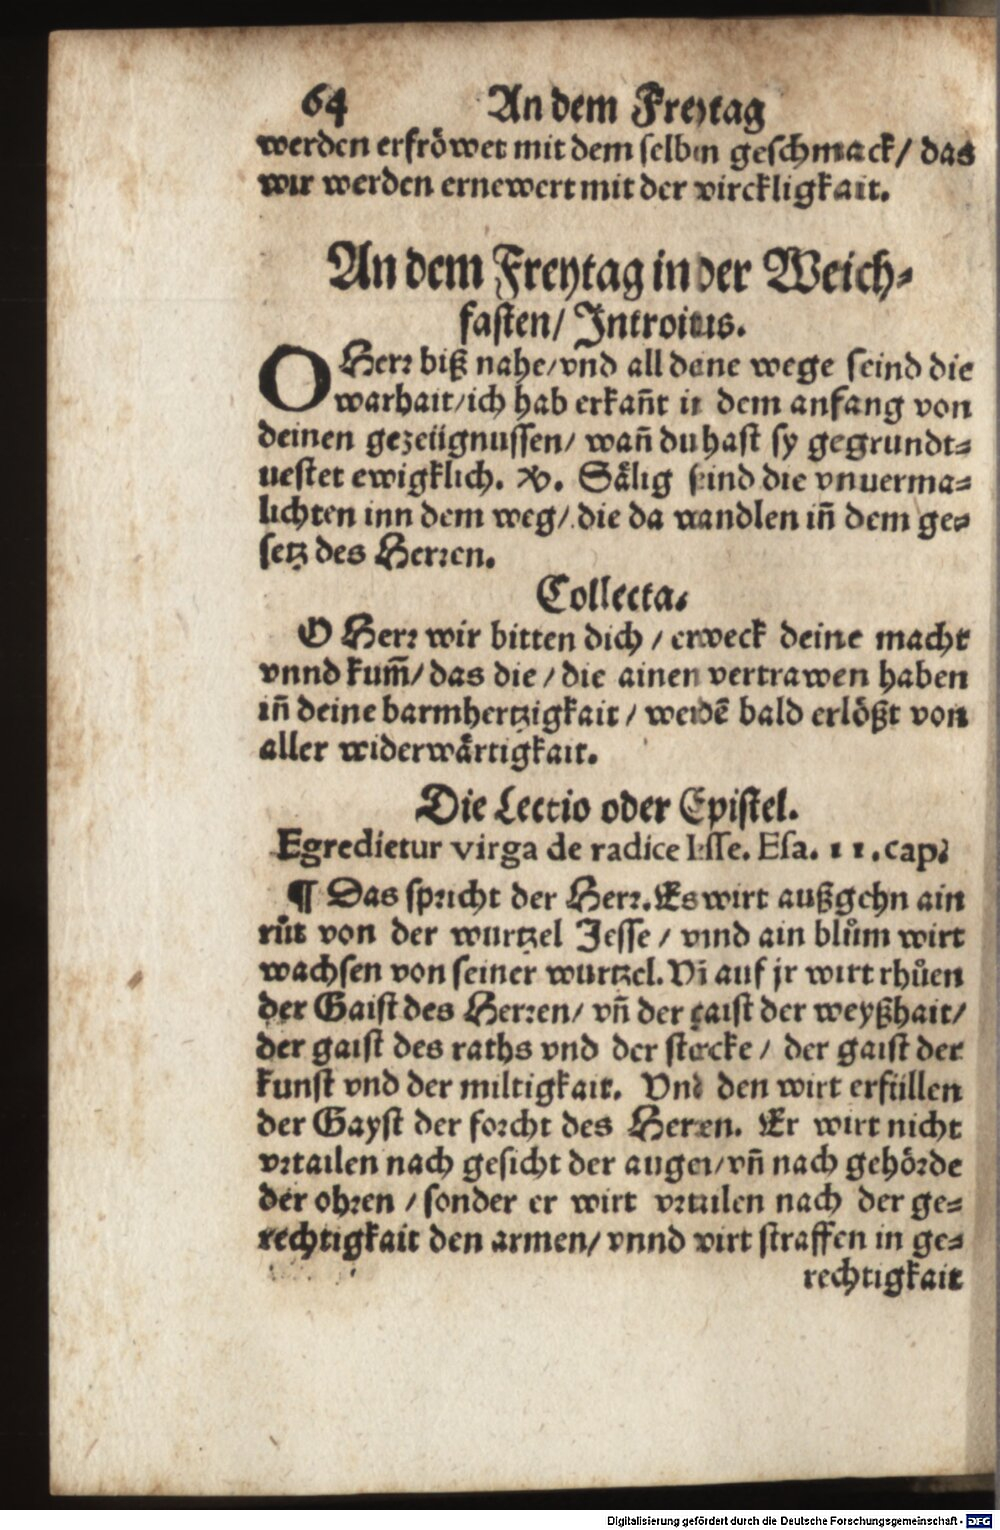 64 An dem Freytag
werden erfröwet mit dem selben geschmack/ das
wir werden ernewert mit der wirckligkait.
An dem Freytag in der Weich-
fasten/ Introitus.
O Herr biß nahe/ vnd all deine wege seind die
warhait/ ich hab erkañt in dem anfang von
deinen gezeügnussen/ wañ du hast sy gegrundt-
uestet ewigklich. V. Sälig seind die vnuerma-
lichten inn dem weg/ die da wandlen iñ dem ge-
setz des Herren.
Collecta.
O Herr wir bitten dich / erweck deine macht
vnnd kum̃/ das die / die ainen vertrawen haben
iñ deine barmhertzigkait / werdẽ bald erlößt von
aller widerwärtigkait.
Die Lectio oder Epistel.
Egredietur virga de radice Iesse. Esa. 11. cap.
¶ Das spricht der Herr. Es wirt außgehn ain
růt von der wurtzel Jesse / vnnd ain blům wirt
wachsen von seiner wurtzel. Vñ auf jr wirt rhůen
der Gaist des Herren/ vñ der gaist der weyßhait/
der gaist des raths vnd der stercke / der gaist der
kunst vnd der miltigkait. Vnd den wirt erfüllen
der Gayst der forcht des Herren. Er wirt nicht
vrtailen nach gesicht der augen/ vñ nach gehörde
der ohren / sonder er wirt vrtailen nach der ge-
rechtigkait den armen/ vnnd wirt straffen in ge-
rechtigkait
Digitalisierung gefördert durch die Deutsche Forschungsgemeinschaft - DFG